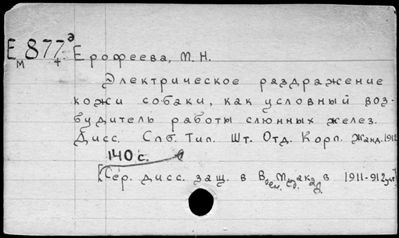 Е 877 э
м +
Ерофеева, М. Н.
Электрическое раздражение
кожи собаки, как условный воз-
будитель работы слюнных желез.
Дисс. Спб. Тип. Шт. Отд. Корп. Жанд. 1912
140 с.
[Сер. дисс. защ. в В. Мед. акад. в 1911-912